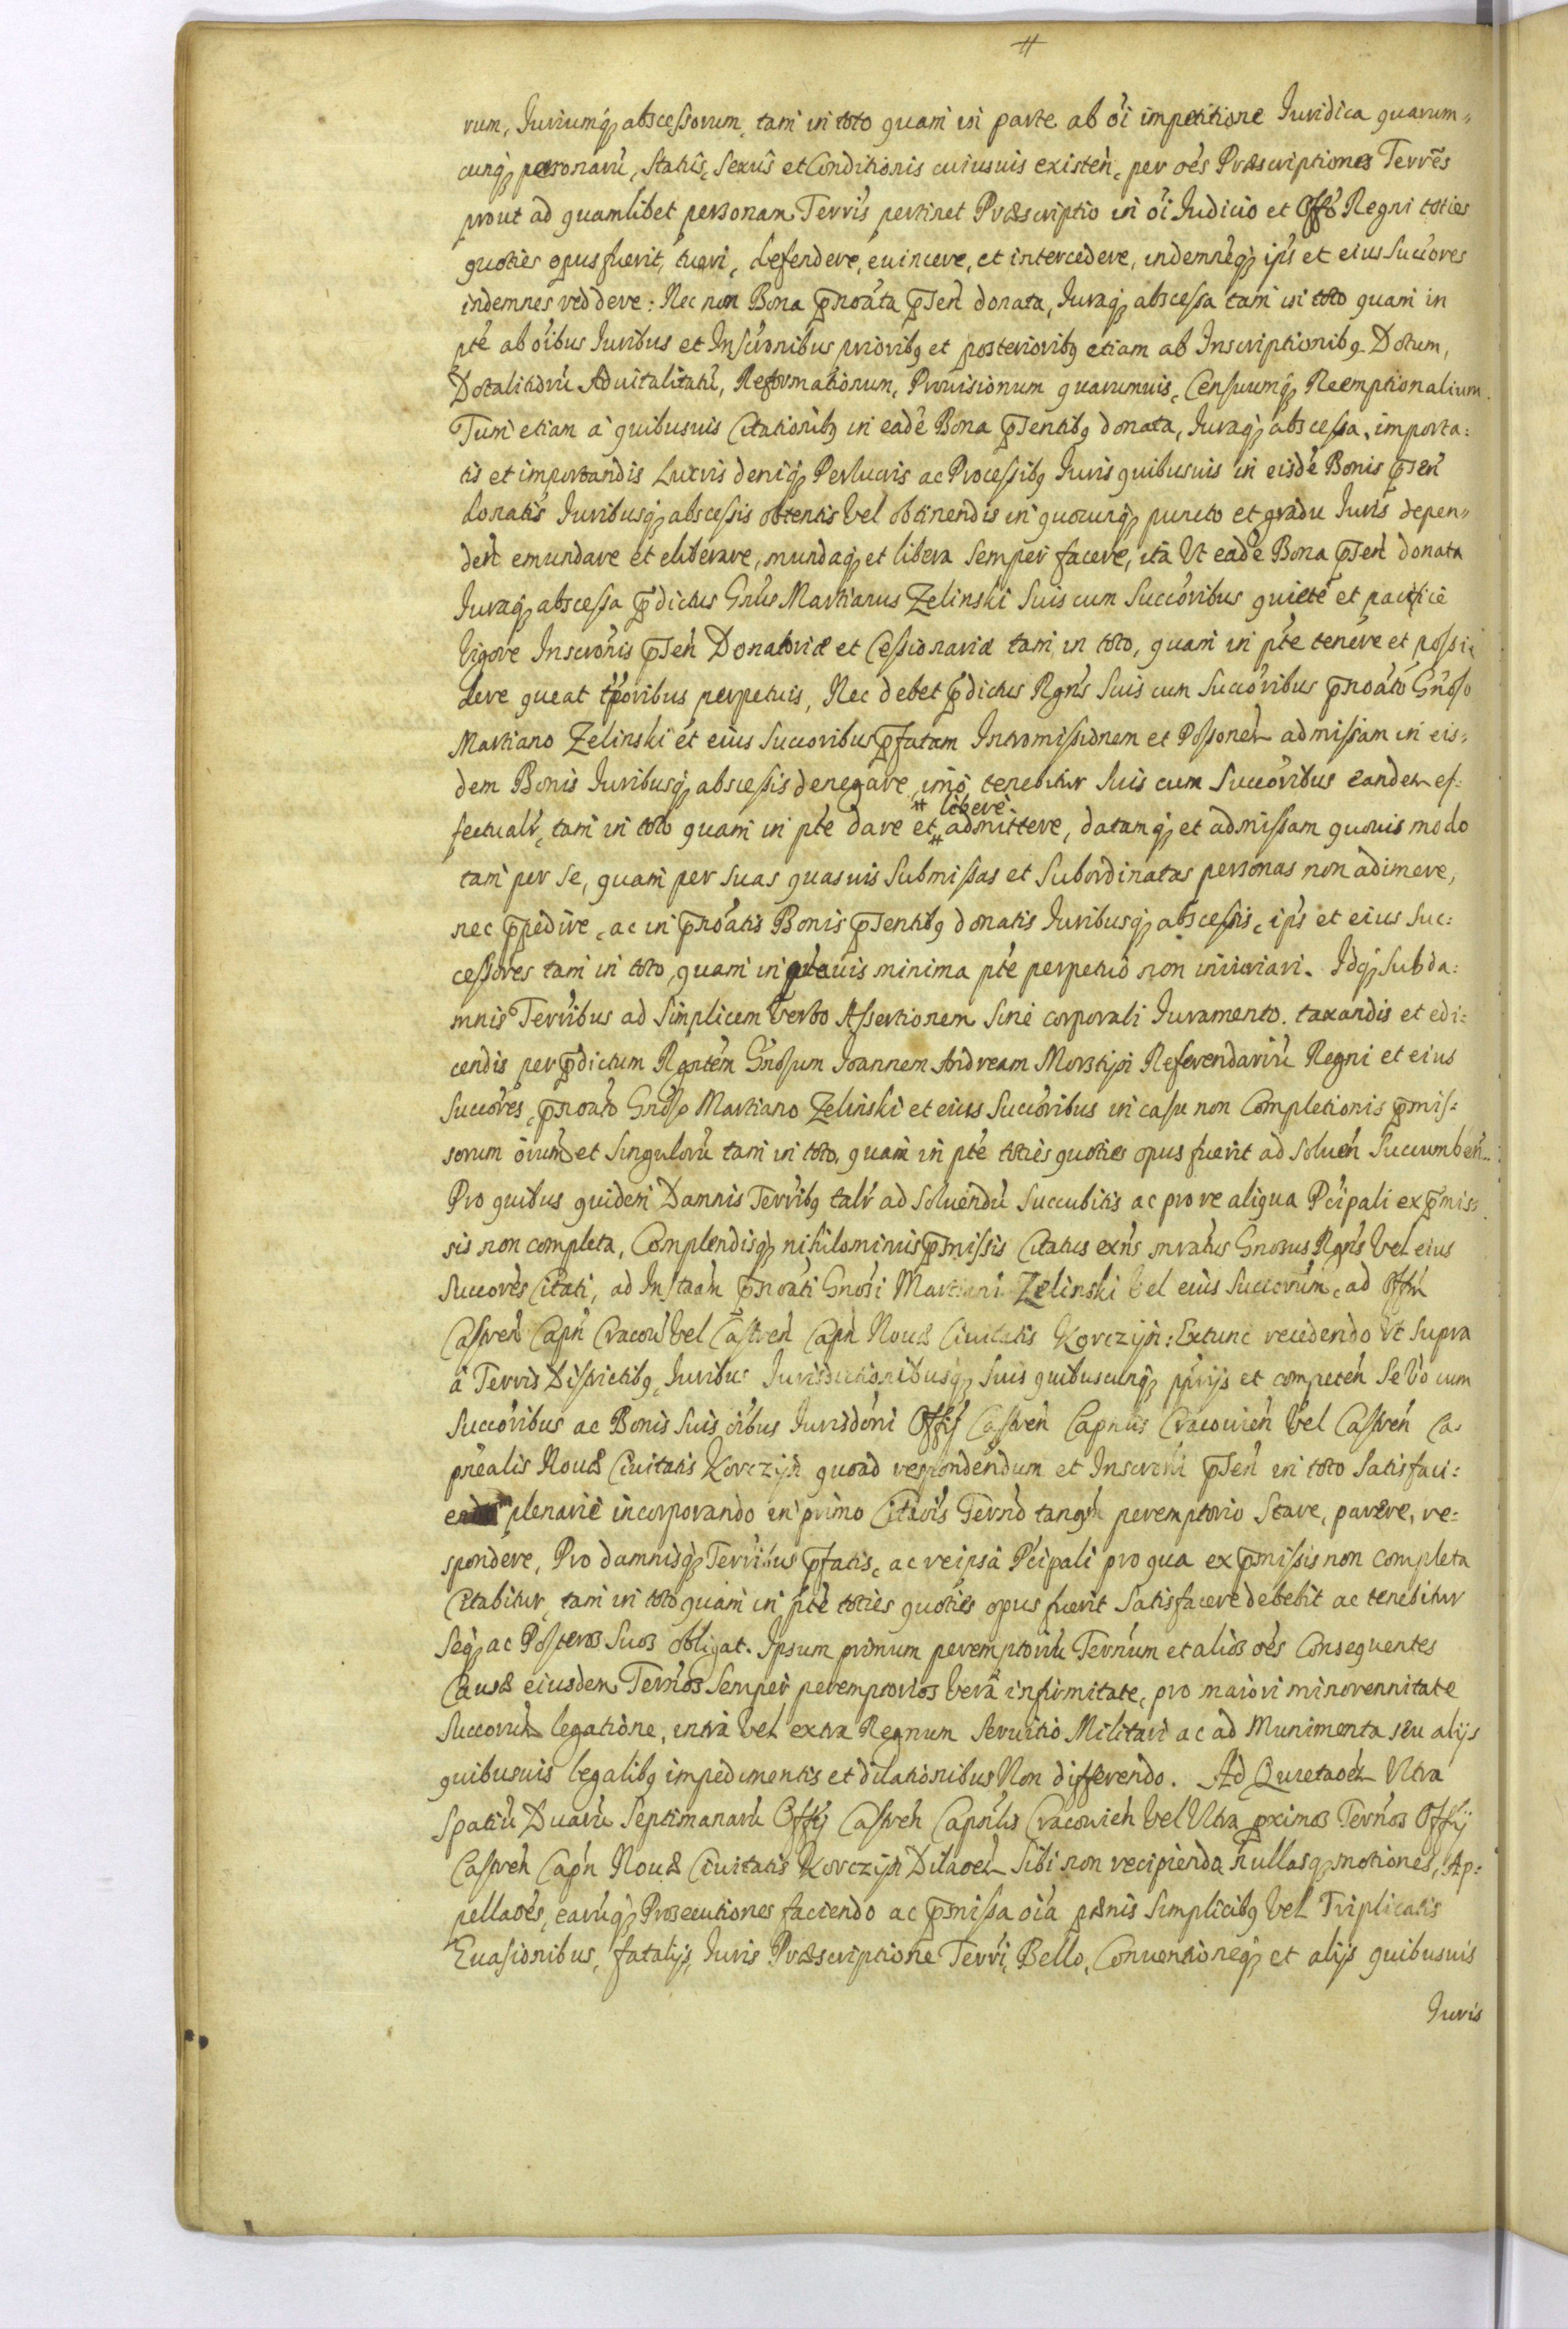 #
rum, Juriumq abscessorum, tam in toto quam in parte ab oi impetitione Juridica quarum„
cunq personaru, Status, Sexus et Conditionis cuiusuis existen, per oes Præscriptiones Terres
prout ad quamlibet personam Terris pertinet Præscriptio in oi Judicio et Offo Regni toties
quoties opus fuerit, tueri, defendere, euincere, et intercedere, indemneq ips et eius Succores
indemnes reddere: Nec non Bona pnoata psen donata, Juraq abscessa tam in toto quam in
pte ab oibus Juribus et Inscronibus prioribq et posterioribq etiam ab Inscriptionibq Dotum,
Dotalitioru Aduitalitatu, Reformationum, Prouisionum quarumuis, Censuumq Reemptionalium.
Tum etiam a quibusuis Citationibq in eade Bona psentibq donata, Juraq abscessa, importa:
tis et importandis Lucris deniq Perlucris ac Processibq Juris quibusuis in eisde Bonis psen
donatis Juribusq abscessis obtentis Vel obtinendis in quocunq puncto et gradu Juris depen„
den emundare et eliberare, mundaq et libera semper facere, ita Ut eade Bona psen donata
Juraq abscessa pdictus Gnus Martianus Zelinski Suis cum Succoribus quiete et pacifice
Vigore Inscronis psen Donatoriæ et Cessionariæ tam in toto, quam in pte tenere et possi:
dere queat tporibus perpetuis, Nec debet pdictus Rgns Suis cum Succoribus pnoato Gnoso
Martiano Zelinski et eius Succoribus pfatam Intromissionem et Possonem admissam in eis„
dem Bonis Juribusq abscessis denegare, imo tenebitur Suis cum Succoribus eandem ef:
# libere
fectualr, tam in toto quam in pte dare et # admittere, datamq et admissam quouis modo
tam per se, quam per suas quasuis Submissas et Subordinatas personas non adimere,
nec ppedire, ac in pnoatis Bonis psentibq donatis Juribusq abscessis, ips et eius Suc:
cessores tam in toto, quam in quauis minima pte perpetuo non iniuriari. Idq sub da:
mnis Terribus ad Simplicem Verbo Assertionem Sine corporali Juramento taxandis et edi:
cendis per pdictum Rgntem Gnosum Joannem Andream Morstijn Referendariu Regni et eius
Succores, pnoato Gnoso Martiano Zelinski et eius Succoribus in casu non Completionis pmis:
sorum oium et Singuloru tam in toto, quam in pte toties quoties opus fuerit ad Soluen Succumben.
Pro quibus quidem Damnis Terribq talr ad Soluendu Succubitis ac pro re aliqua Pcipali ex pmis:
sis non completa, Complendisq nihilominus pmissis Citatus exns Gnosus Rgns Vel eius
Succores Citati, ad Instaam pnoati Gnosi Martiani Zelinski Vel eius Succorum, ad Offm
Castren Capn Cracou Vel Castren Capn Nouæ Ciuitatis Korczijn: Extunc recedendo Ut supra
a Terris Districtibq, Juribus Jurisdictionibusq Suis quibuscunq pprijs et competen Se Vo cum
Succoribus ac Bonis Suis oibus Jurisdoni Offij Castren Capnlis Cracouien Vel Castren Ca:
pnealis Nouæ Ciuitatis Korczijn quoad respondendum et Inscroni psen in toto Satisfaci:
plenarie incorporando in primo Citaois Terno tanqm peremptorio Stare, parere, re:
spondere, Pro damnisq Terribus pfatis, ac re ipsa Pcipali pro qua ex pmissis non completa
Citabitur, tam in toto quam in pte toties quoties opus fuerit Satisfacere debebit ac tenebitur
Seq ac Posteros Suos obligat. Ipsum primum peremptoriu Ternum et alios oes Consequentes
Causæ eiusdem Ternos Semper peremptorios Vera infirmitate, pro maiori minorennitate
Succorum legatione, intra Vel extra Regnum Seruitio Militari ac ad Munimenta seu alijs
quibusuis legalibq impedimentis et dilationibus Non differendo. Ad Quietaoem Ultra
Spatiu Duaru Septimanaru Offij Castren Capnlis Cracouien Vel Ultra pximos Ternos Offij
Castren Capn Nouæ Ciuitatis Korczijn Dilaoem Sibi non recipiendo nullasq motiones, Ap:
pellaoes, earuq Prosecutiones faciendo ac pmissa oia pænis Simplicibq Vel Triplicatis
Euasionibus, fatalijs Juris Præscriptione Terri, Bello, Conuentioneq et alijs quibusuis
Juris